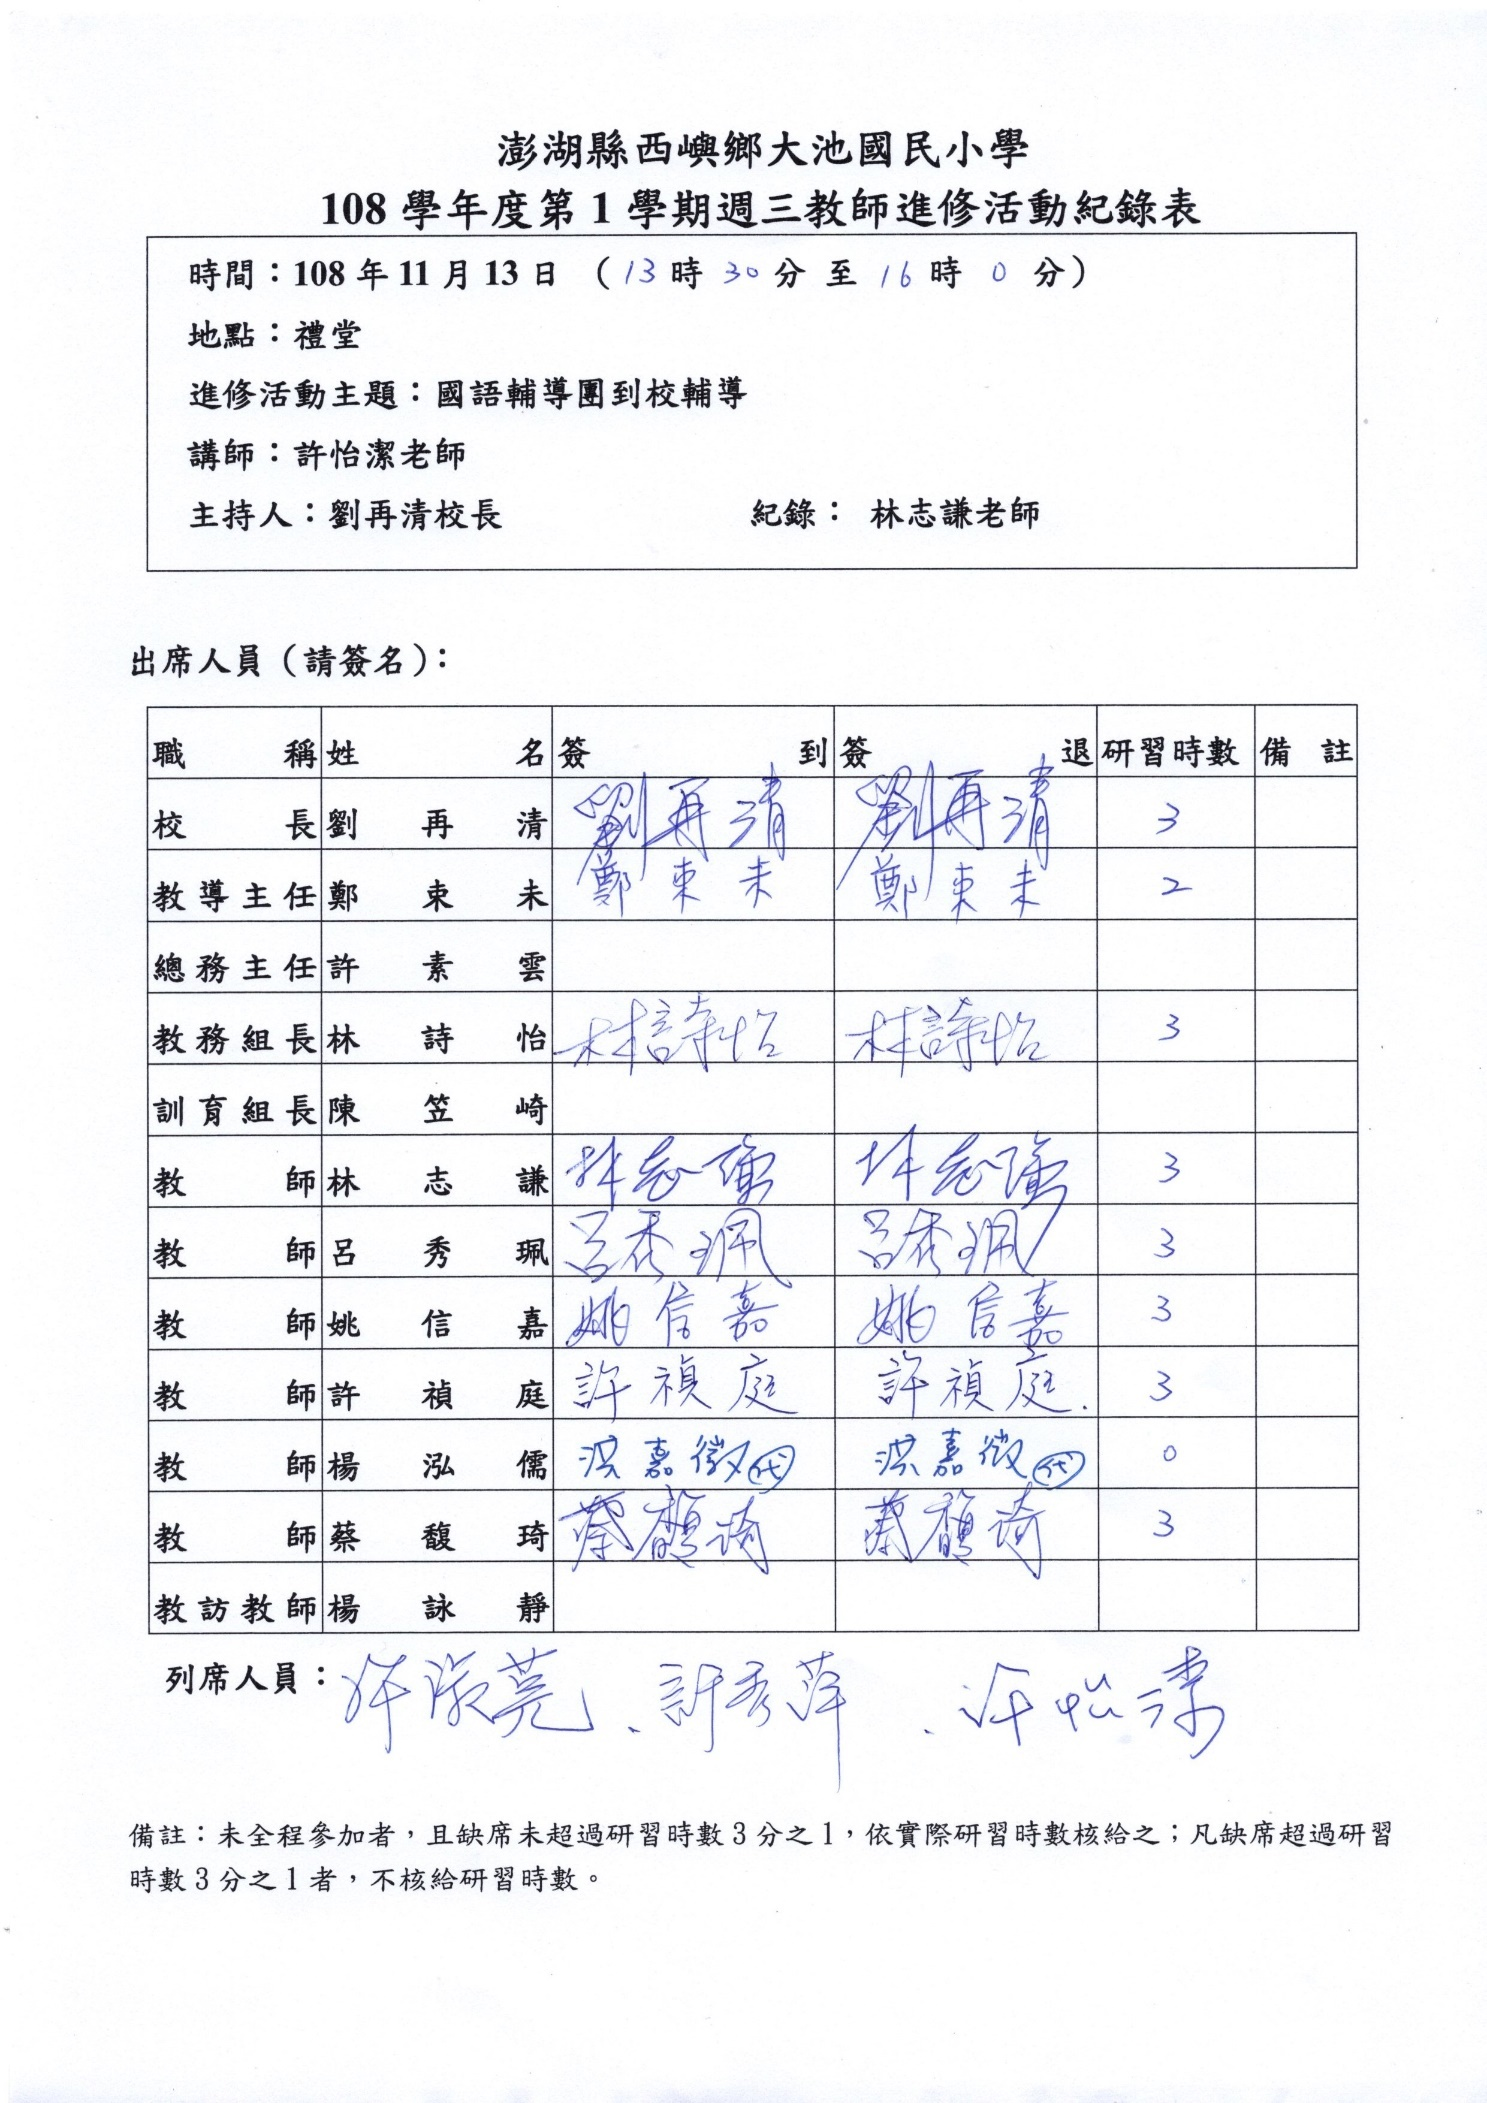 澎湖縣西嶼鄉大池國民小學
108 學年度第 1 學期週三教師進修活動紀錄表
時間：108 年 11 月 13 日 （13 時 30 分 至 16 時 0 分）
地點：禮堂
進修活動主題：國語輔導團到校輔導
講師：許怡潔老師
主持人：劉再清校長 紀錄： 林志謙老師
出席人員（請簽名）：
職稱 姓名 簽到 簽退 研習時數 備註
校長 劉再清 劉再清 劉再清 3
教導主任 鄭束未 鄭束未 鄭束未 2
總務主任 許素雲
教務組長 林詩怡 林詩怡 林詩怡 3
訓育組長 陳笠崎
教師 林志謙 林志謙 林志謙 3
教師 呂秀珮 呂秀珮 呂秀珮 3
教師 姚信嘉 姚信嘉 姚信嘉 3
教師 許禎庭 許禎庭 許禎庭. 3
教師 楊泓儒 洪嘉徽代 洪嘉徽代 0
教師 蔡馥琦 蔡馥琦 蔡馥琦 3
教訪教師 楊詠靜
列席人員： 許淑菀、許秀萍、許怡潔
備註：未全程參加者，且缺席未超過研習時數 3 分之 1，依實際研習時數核給之；凡缺席超過研習
時數 3 分之 1 者，不核給研習時數。